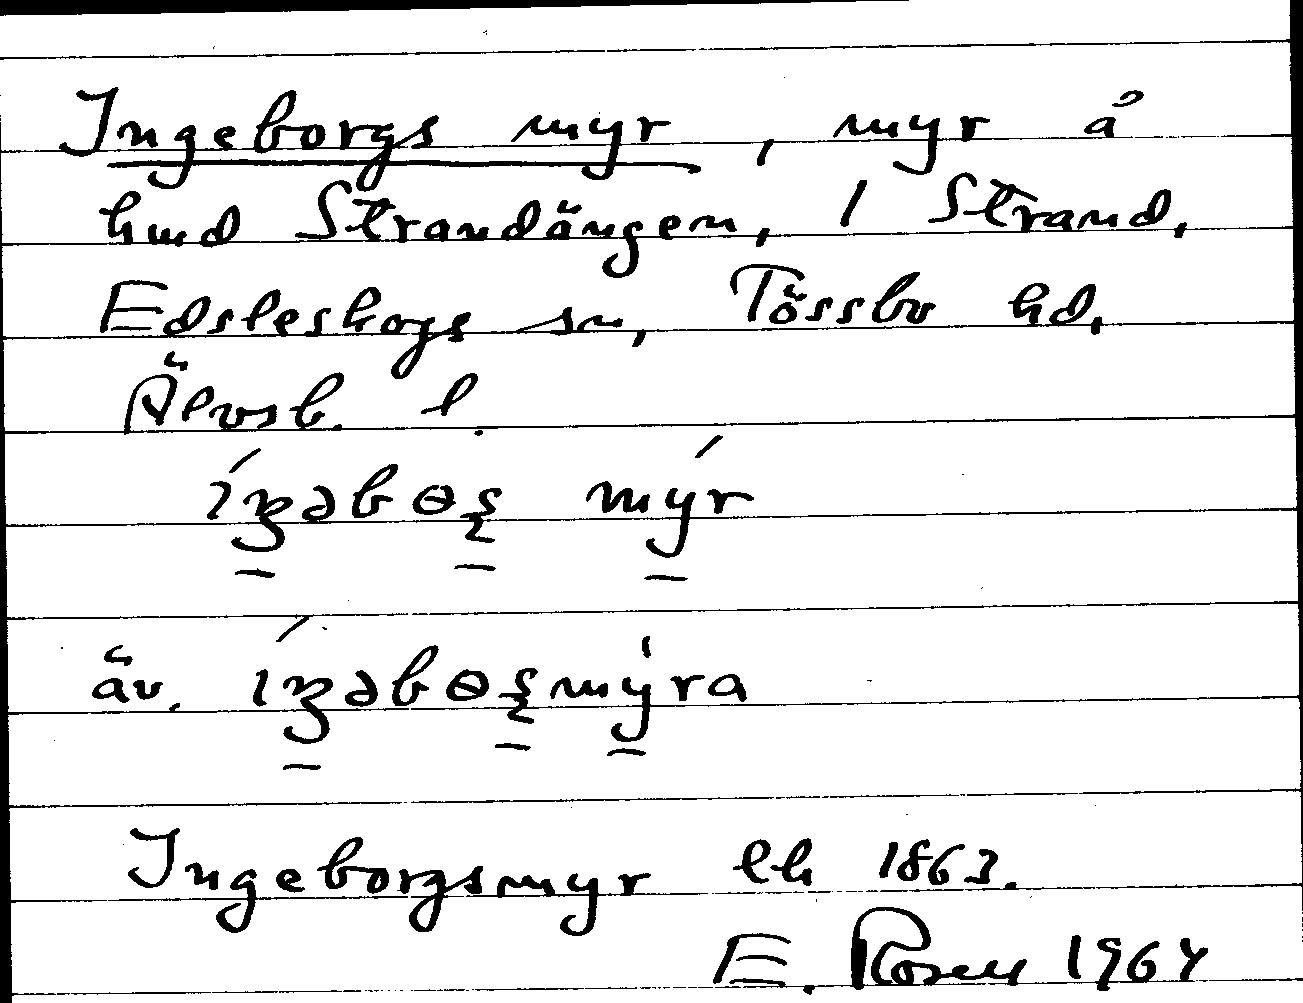 Ingeborgs myr, myr å
hmd Strandängen, 1 Strand,
Edsleskogs sn, Tössbo hd,
Älvsb. l.
íŋəbɵʂ mýr
äv. íŋəbɵʂmy̍ra
Ingeborgsmyr lh 1863.
E. Rosen 1964